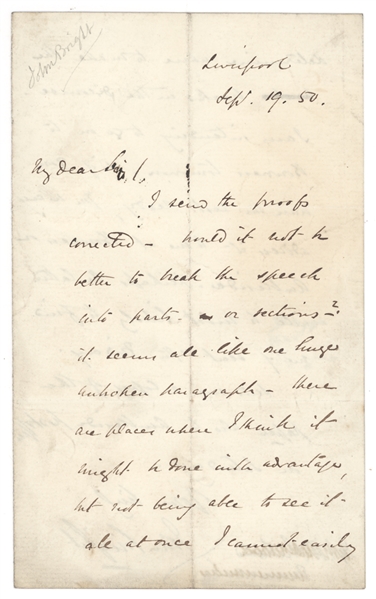 John Bright
Liverpool
Sept. 19. 50.
My dear Sir,
I send the proofs
corrected - would it not be
better to break the speech
into parts - or sections -?
it seems all like one huge
unbroken paragraph - there
are places where I think it
might be done with advantage,
but not being able to see it
all at once I cannot easily